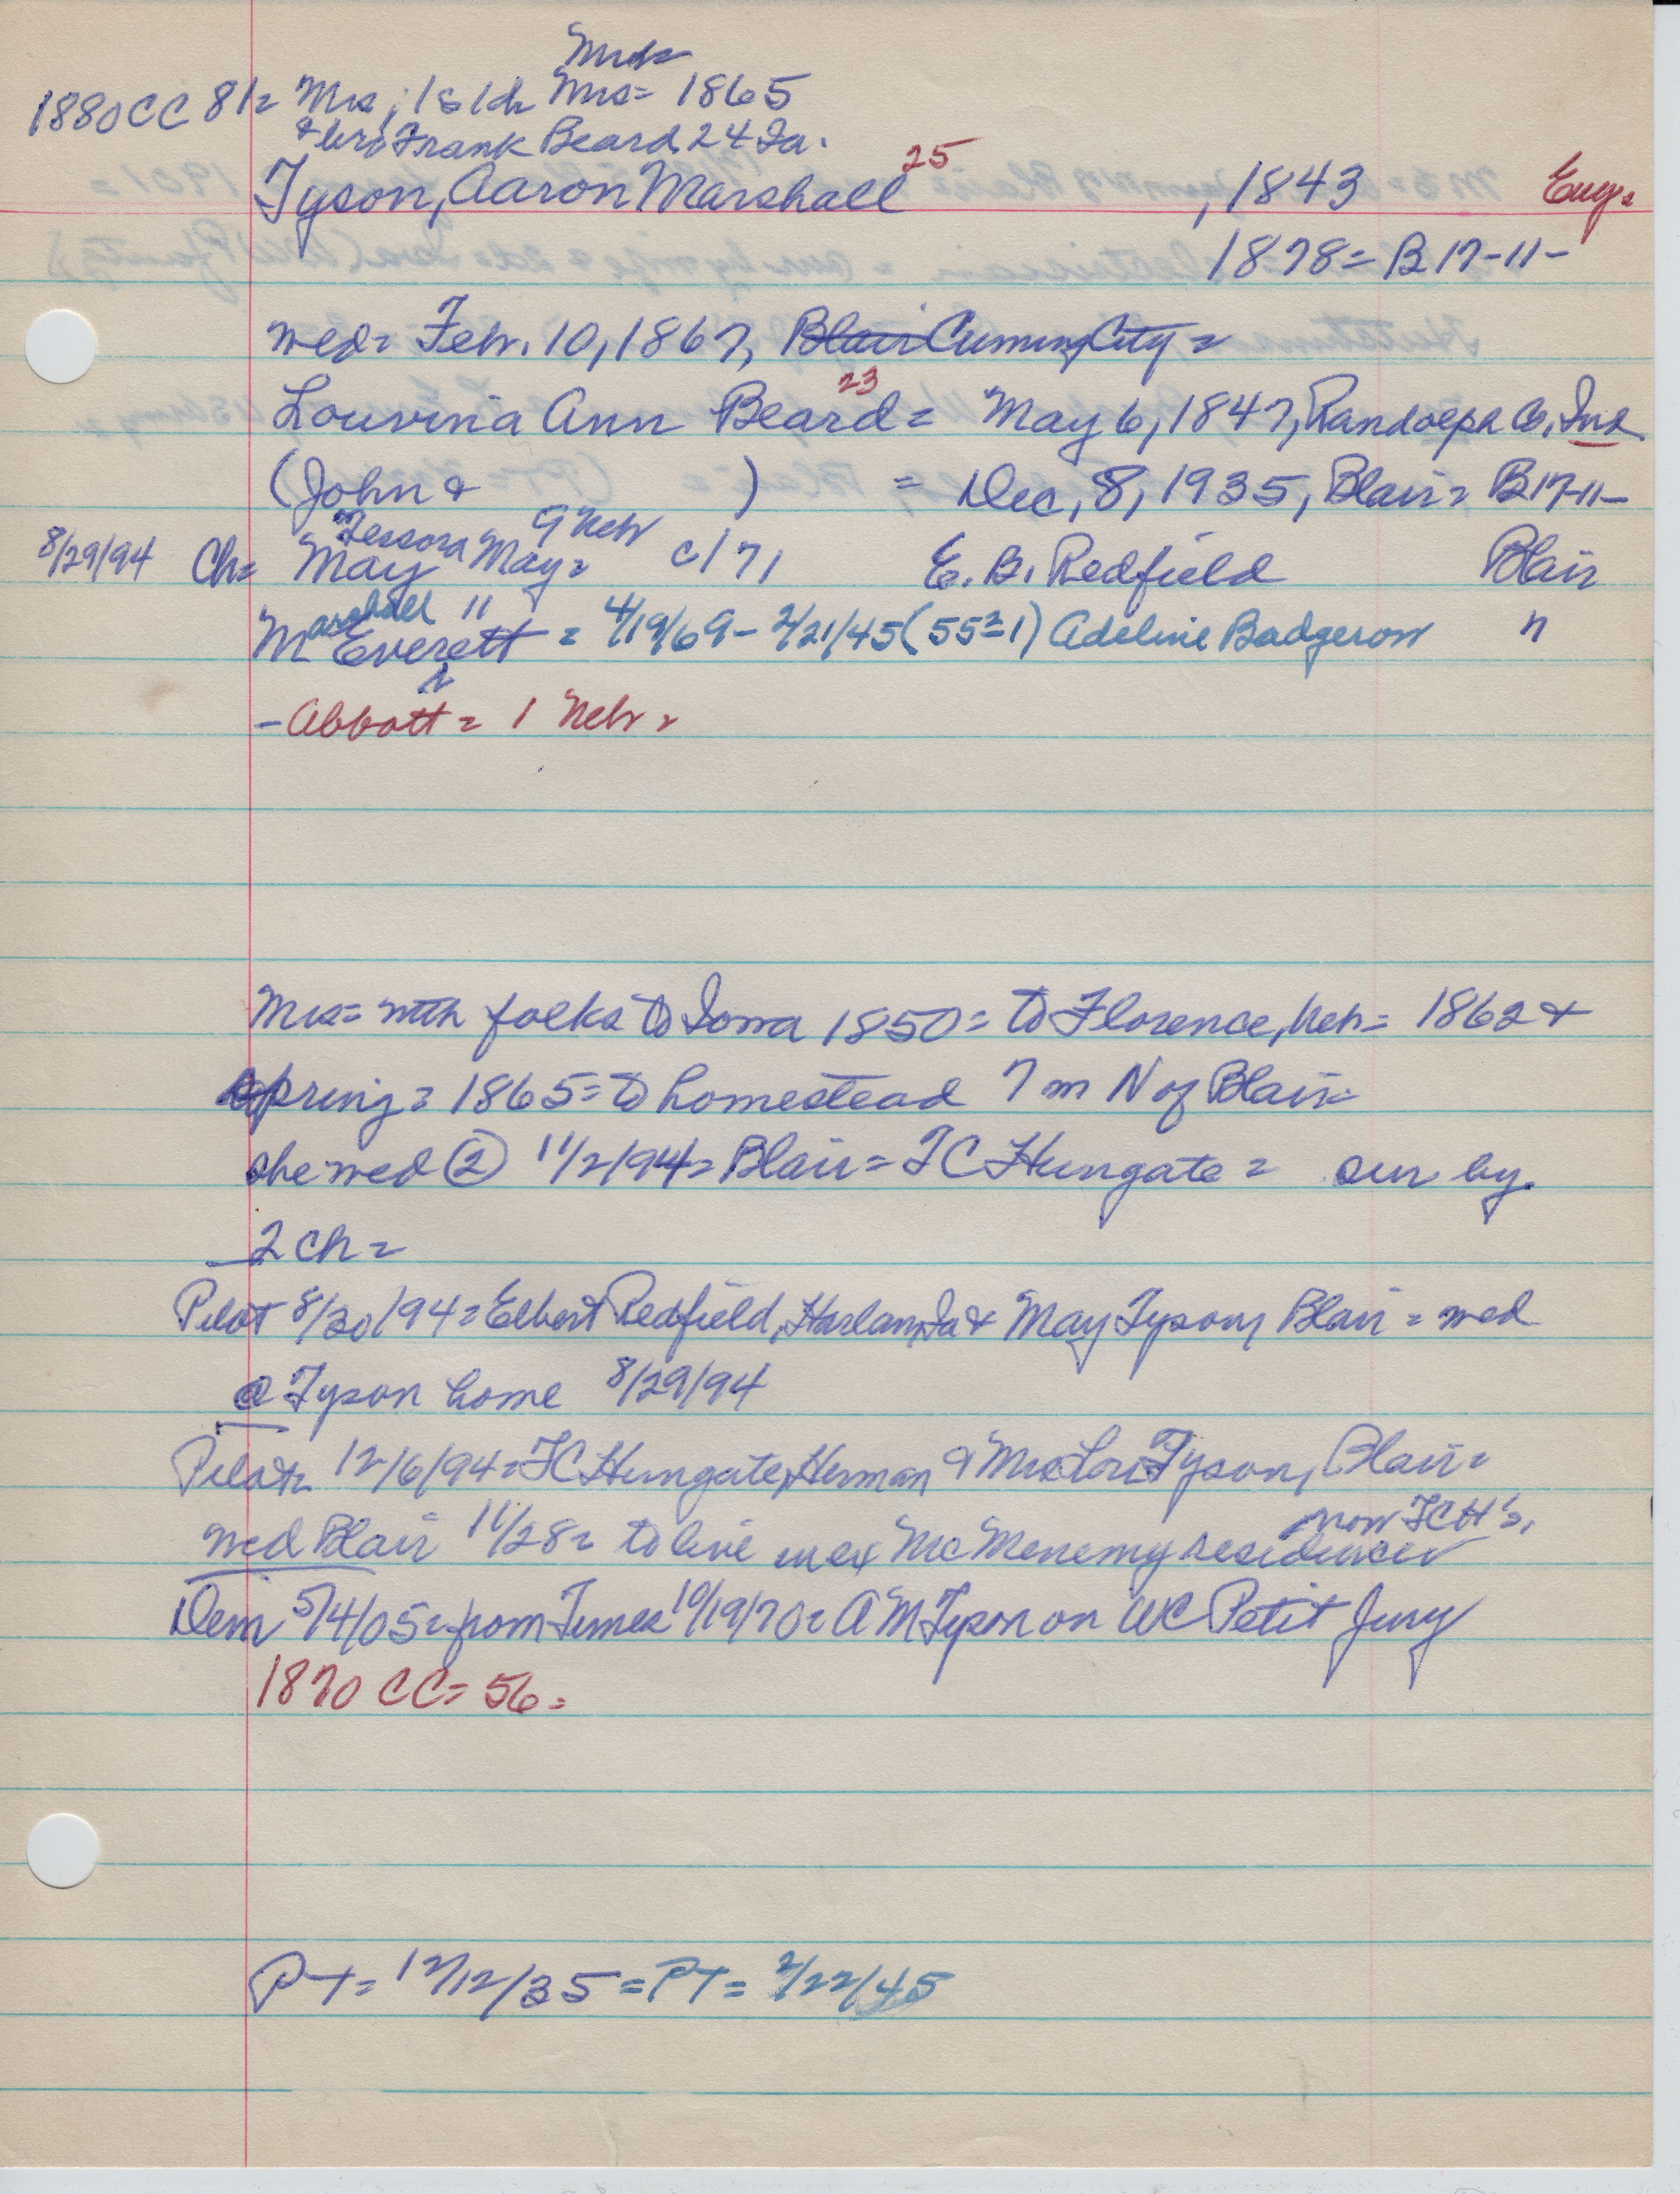 1880 CC 81= Mrs; 1s 1d Mrs= 1865
& bro Frank Beard 24 Ia.
Tyson, Aaron Marshall 25 , 1843 Eng=
1878= B 17-11-
wed= Febr. 10, 1867, Blair Cuming City=
Louvina Ann Beard 23 = May 6, 1847, Randolph Co, Ind
(John & ) = Dec, 8, 1935, Blair= B17-11-
Tessora 9 Neb
8/29/94 Ch= May May= c/71 E. B. Redfield Blair
Marshall 11
M Everett = 4/19/69- 2/21/45 (55=1) Adeline Badgerow "
- Abbott= 1 Neb=
Mrs= with folks to Iowa 1850= to Florence, Neb= 1862 &
spring= 1865= to homestead 7 m N of Blair=
she wed ② 11/2/94= Blair= TC Hungate= sur by
2 ch=
Pilot 8/30/94= Elbert Redfield, Harlan, Ia & May Tyson, Blair= wed
@ Tyson home 8/29/94
Pilot= 12/6/94= TC Hungate, Herman & Mrs Lou Tyson, Blair=
now TCH's,
wed Blair 11/28= to live in ex McMenemy residence
Dem 5/4/05= from Times 10/19/70= A M Tyson on WC Petit Jury
1870 CC= 56=
PT= 12/12/35= PT= 2/22/45